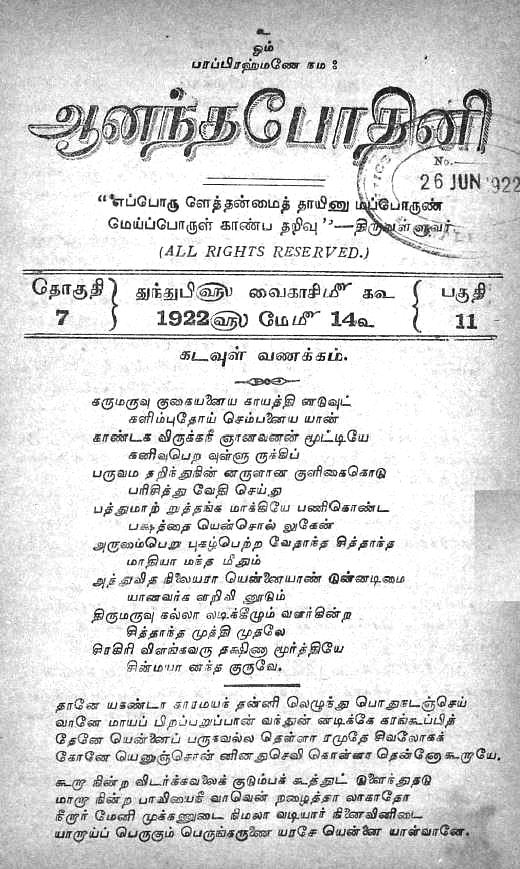 உ
ஓம்
பரப்பிரஹ்மணே நம :
ஆனந்தபோதினி
No.
26 JUN 1922
“எப்பொரு ளெத்தன்மைத் தாயினு மப்பொருண்
மெய்ப்பொருள் காண்ப தறிவு”—திருவள்ளுவர்
(ALL RIGHTS RESERVED.)
தொகுதி துந்துபி௵ வைகாசி௴ ௧௳ பகுதி
7 1922௵ மே௴ 14௳ 11
கடவுள் வணக்கம்.
கருமருவு குகையனைய காயத்தி னடுவுட்
களிம்புதோய் செம்பனைய யான்
காண்டக விருக்கநீ ஞானவனன் மூட்டியே
கனிவுபெற வுள்ளு ருக்கிப்
பருவம தறிந்துநின் னருளான குளிகைகொடு
பரிசித்து வேதி செய்து
பத்துமாற் றுத்தங்க மாக்கியே பணிகொண்ட
பக்ஷத்தை யென்சொல் லுகேன்
அருமைபெறு புகழ்பெற்ற வேதாந்த சித்தாந்த
மாதியா மந்த மீதும்
அத்துவித நிலையரா யென்னையாண் டுன்னடிமை
யானவர்க ளறிவி னூடும்
திருமருவு கல்லா லடிக்கீழும் வளர்கின்ற
சித்தாந்த முத்தி முதலே
சிரகிரி விளங்கவரு தக்ஷிணா மூர்த்தியே
சின்மயா னந்த குருவே.
தானே யகண்டா காரமயந் தன்னி லெழுந்து பொதுநடஞ்செய்
வானே மாயப் பிறப்பறுப்பான் வந்துன் னடிக்கே கரங்கூப்பித்
தேனே யென்னைப் பருகவல்ல தெள்ளா ரமுதே சிவலோகக்
கோனே யெனுஞ்சொன் னினதுசெவி கொள்ளா தென்னோ கூறாயே.
கூறா நின்ற விடர்க்கவலைக் குடும்பக் கூத்துட் டுளைந்துதடு
மாறா நின்ற பாவியைநீ வாவென் றழைத்தா லாகாதோ
நீறார் மேனி முக்கணுடை நிமலா வடியார் நினைவினிடை
யாறாய்ப் பெருகும் பெருங்கருணை யரசே யென்னை யாள்வானே.